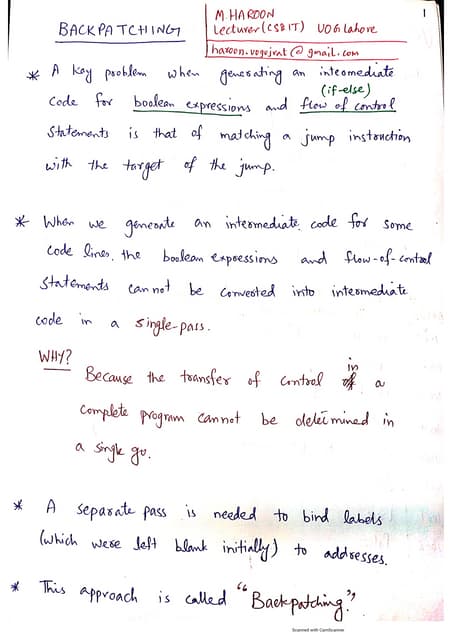 BACKPATCHING
M. HAROON
Lecturer (CS&IT) UOG Lahore
haroon.uogujrat@gmail.com
1
* A key problem when generating an intermediate
(if-else)
code for boolean expressions and flow of control
statements is that of matching a jump instruction
with the target of the jump.
* When we generate an intermediate code for some
code lines, the boolean expressions and flow-of-control
statements cannot be converted into intermediate
code in a single-pass.
WHY?
Because the transfer of control in a
complete program cannot be determined in
a single go.
* A separate pass is needed to bind labels
(which were left blank initially) to addresses.
* This approach is called "Backpatching".
Scanned with CamScanner